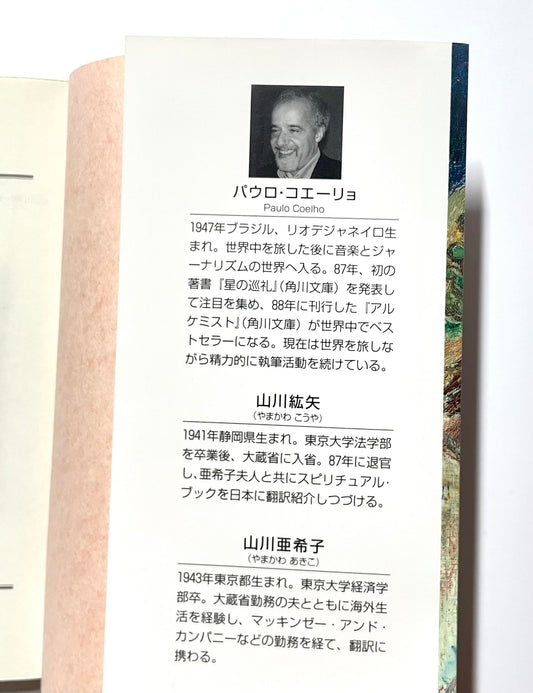 パウロ・コエーリョ
Paulo Coelho
1947年ブラジル、リオデジャネイロ生
まれ。世界中を旅した後に音楽とジャ
ーナリズムの世界へ入る。87年、初の
著書『星の巡礼』（角川文庫）を発表し
て注目を集め、88年に刊行した『アル
ケミスト』（角川文庫）が世界中でベス
トセラーになる。現在は世界を旅しな
がら精力的に執筆活動を続けている。
山川紘矢
（やまかわ こうや）
1941年静岡県生まれ。東京大学法学部
を卒業後、大蔵省に入省。87年に退官
し、亜希子夫人と共にスピリチュアル・
ブックを日本に翻訳紹介しつづける。
山川亜希子
（やまかわ あきこ）
1943年東京都生まれ。東京大学経済学
部卒。大蔵省勤務の夫とともに海外生
活を経験し、マッキンゼー・アンド・
カンパニーなどの勤務を経て、翻訳に
携わる。